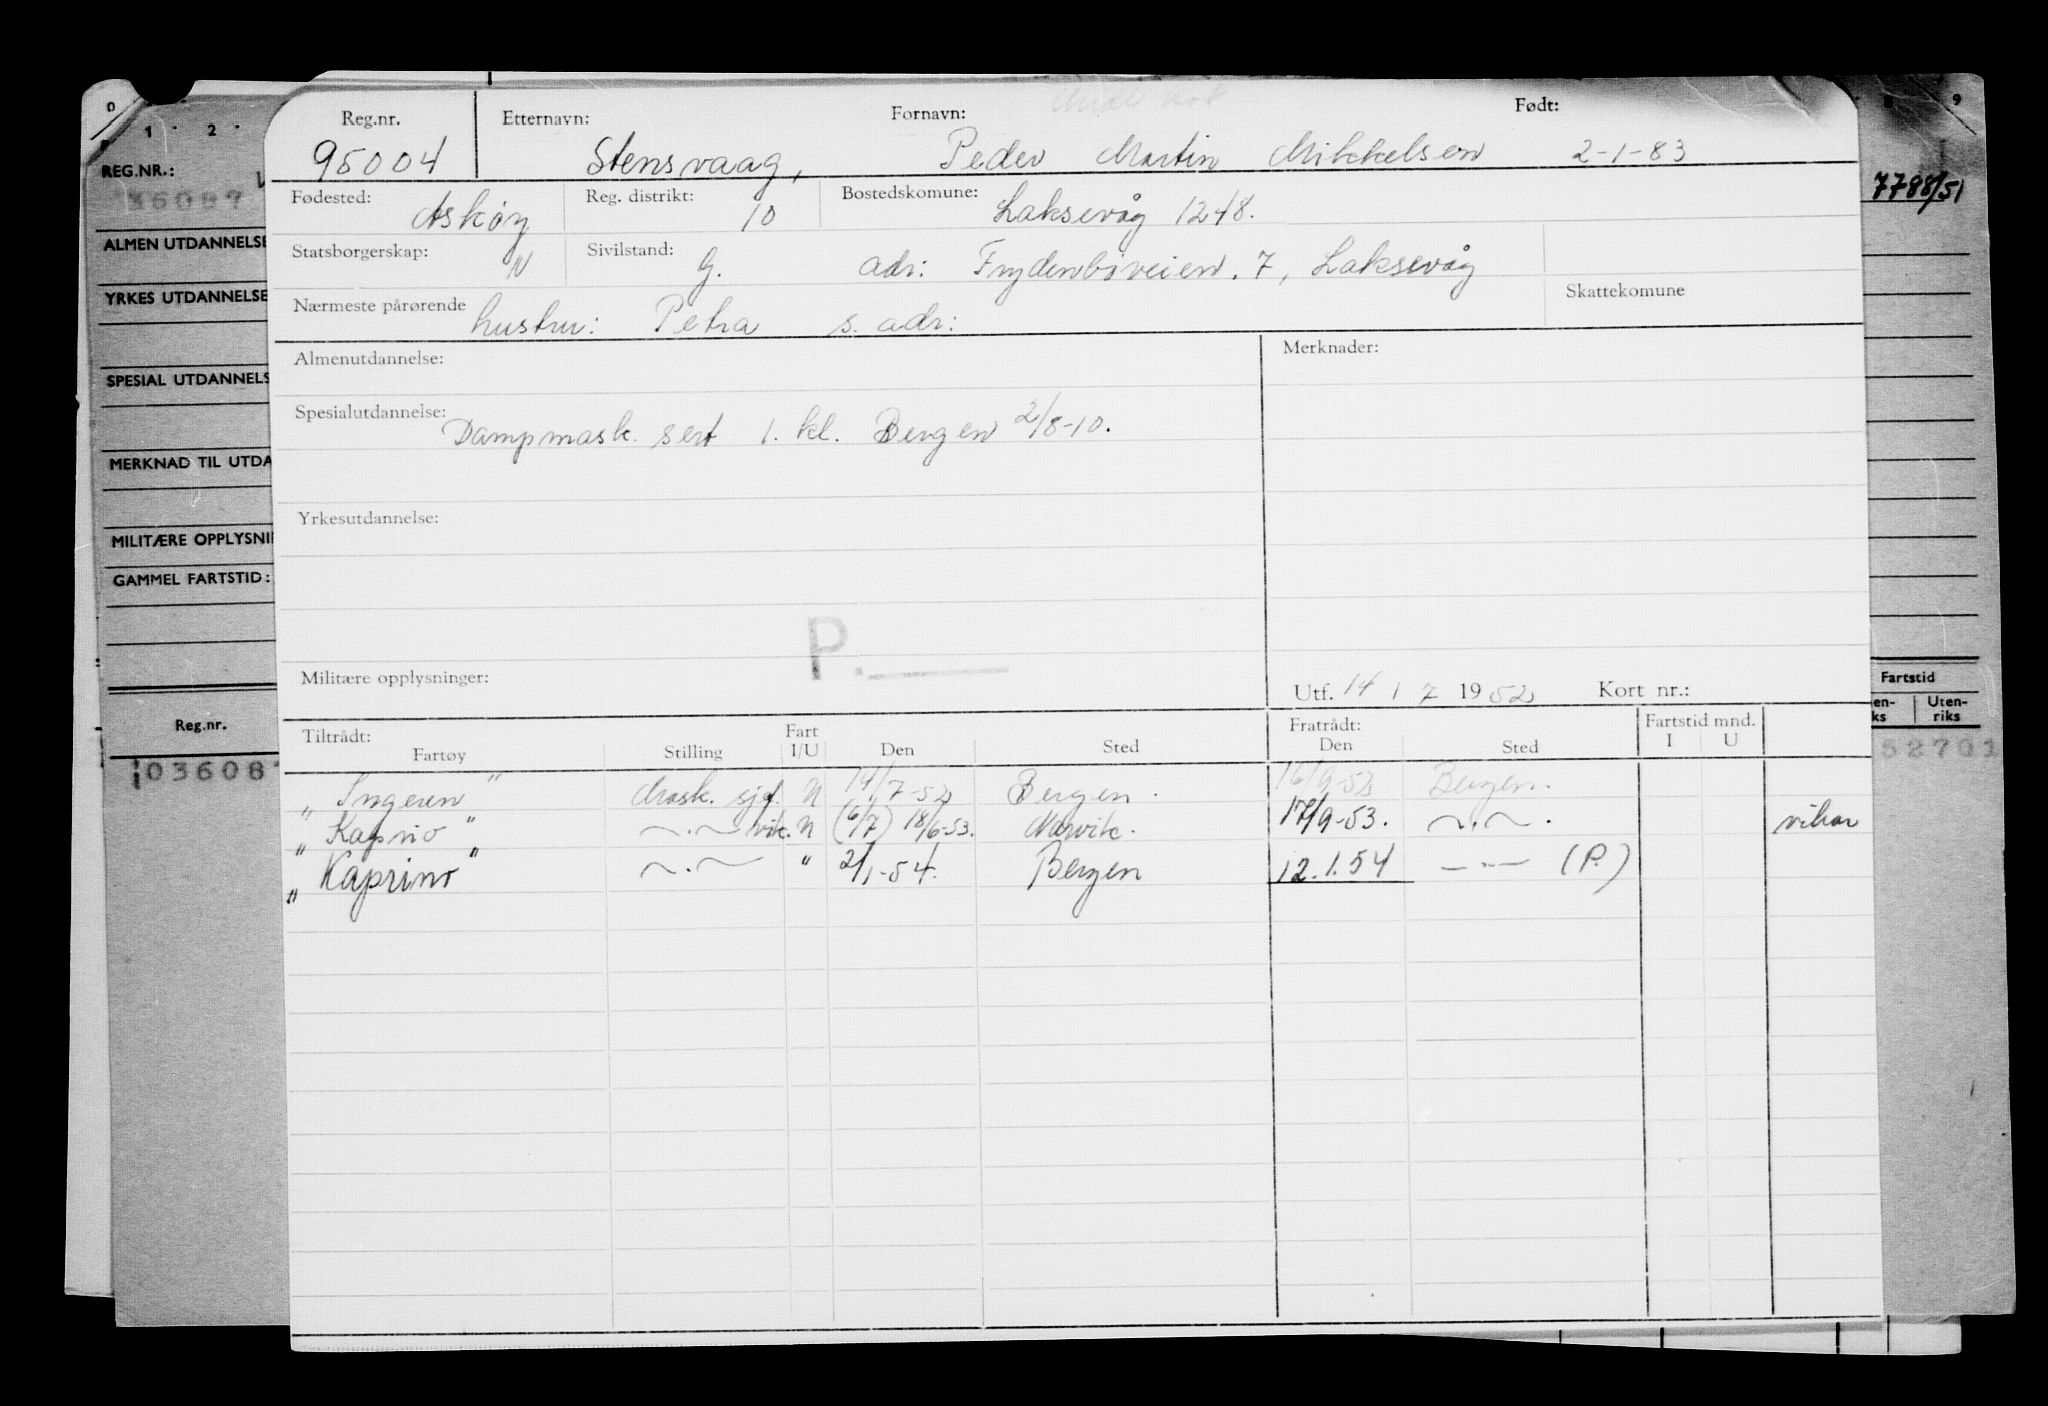 0 1 2 8 9
Reg.nr. Etternavn: Fornavn: Født:
95004 Stensvaag, Peder Martin Mikkelsen 2-1-83
REG.NR.:
36087 7788/51
Fødested: Askøy Reg. distrikt: 10 Bostedskomune: Laksevåg 1248.
ALMEN UTDANNELSE
Statsborgerskap: N Sivilstand: G. adr: Frydenbøveien. 7, Laksevåg
YRKES UTDANNELSE
Nærmeste pårørende hustru: Petra s. adr: Skattekomune
Almenutdannelse: Merknader:
SPESIAL UTDANNELS
Spesialutdannelse: Dampmask. sert 1. kl. Bergen 2/8-10.
MERKNAD TIL UTDA
Yrkesutdannelse:
MILITÆRE OPPLYSNI
GAMMEL FARTSTID:
P.
Militære opplysninger: Utf. 14 / 7 1952 Kort nr.:
Fartstid
en-ks Uten-riks
Reg.nr.
Tiltrådt: Fratrådt: Fartstid mnd.
Fartøy Stilling Fart I/U Den Sted Den Sted I U
03608 52701
"Ingeren" Mask. sjef. N 14/7-52 Bergen. 16/9-52 Bergen.
"Kaprio" ~.~ vik. N (6/7) 18/6-53. Narvik. 17/9-53. ~.~. vikar
"Kaprino" ~.~ " 2/1-54. Bergen 12.1.54 — " — (P.)